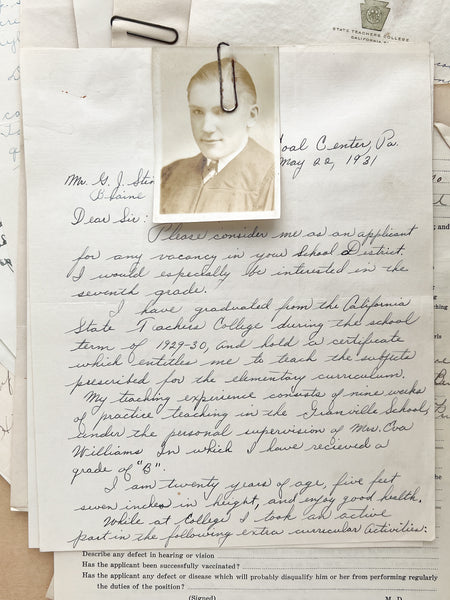 STATE TEACHERS COLLEGE
Coal Center, Pa.
May 22, 1931
Mr. G. J. Ste
Blaine
Dear Sir:
Please consider me as an applicant
for any vacancy in your School District.
I would especially be interested in the
seventh grade.
I have graduated from the California
State Teachers College during the school
term of 1929-30, and hold a certificate
which entitles me to teach the subjects
prescribed for the elementary curriculum.
My teaching experience consists of nine weeks
of practice teaching in the Granville School,
under the personal supervision of Mrs. Ova
Williams In which I have recieved a
grade of "B".
I am twenty years of age, five feet
seven inches in height, and enjoy good health.
While at College I took an active
part in the following extra curricular activities:
Describe any defect in hearing or vision
Has the applicant been successfully vaccinated?
Has the applicant any defect or disease which will probably disqualify him or her from performing regularly
the duties of the position?
(Signed) M. D.